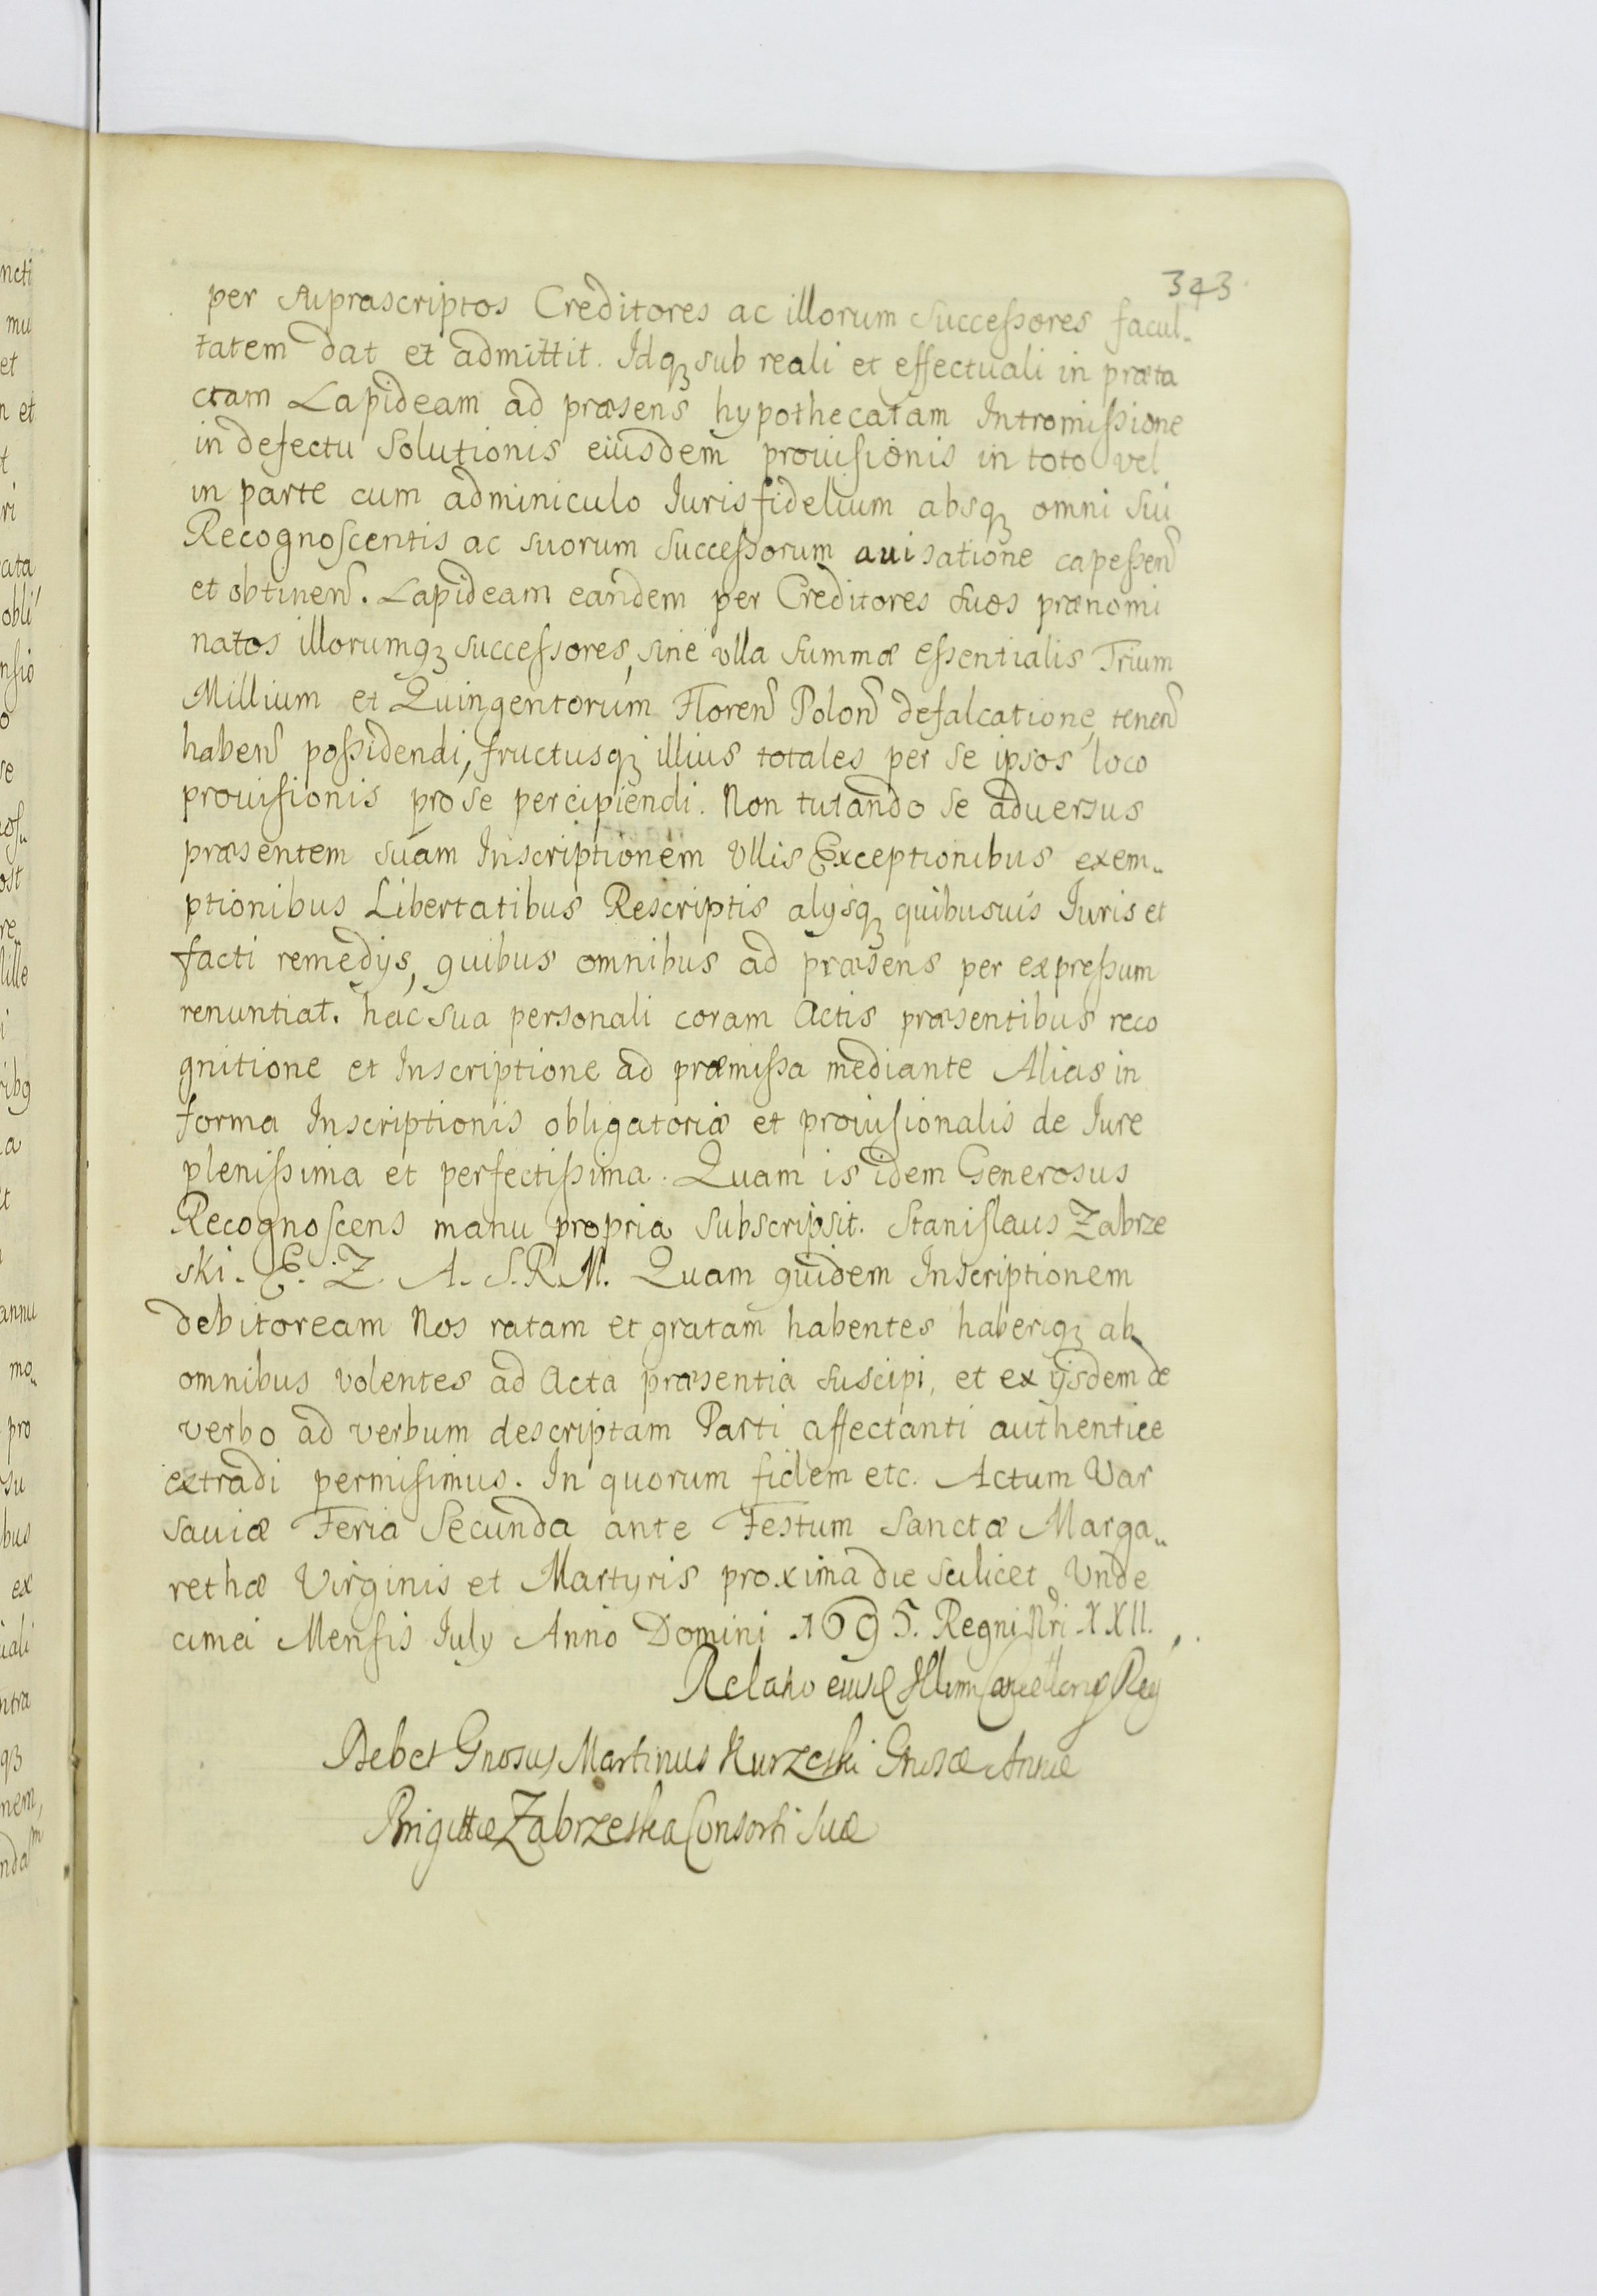 343
per supræscriptos Creditores ac illorum Successores facul„
tatem dat et admittit. Idq; sub reali et effectuali in præta
ctam Lapideam ad præsens hypothecatam Intromissione
in defectu Solutionis eiusdem prouisionis in toto vel
in parte cum adminiculo Juris fidelium absq; omni sui
Recognoscentis ac suorum Successorum auisatione capessen
et obtinen. Lapideam eandem per Creditores suos prænomi
natos illorumq; successores, sine vlla Summæ essentialis Trium
Millium et Quingentorum Floren Polon defalcatione, tenen
haben possidendi, fructusq; illius totales per se ipsos loco
prouisionis pro se percipiendi. Non tutando se aduersus
præsentem suam Inscriptionem Vllis Exceptionibus exem„
ptionibus Libertatibus Rescriptis alysq; quibusuis Juris et
facti remedijs, quibus omnibus ad præsens per expressum
renuntiat. hac sua personali coram Actis præsentibus reco
gnitione et Inscriptione ad præmissa mediante Alias in
forma Inscriptionis obligatoriæ et prouisionalis de Jure
plenissima et perfectissima. Quam is idem Generosus
Recognoscens manu propria subscripsit. Stanislaus Zabrze
ski. E. Z. A. S. R. M. Quam quidem Inscriptionem
debitoream Nos ratam et gratam habentes haberiq; ab
omnibus volentes ad Acta præsentia suscipi, et ex ijsdem de
verbo ad verbum descriptam Parti affectanti authentice
extradi permisimus. In quorum fidem etc. Actum Var
sauiæ Feria Secunda ante Festum Sanctæ Marga„
rethæ Virginis et Martyris proxima die scilicet Vnde
cima Mensis July Anno Domini 1695. Regni Nri XXII.
Relatio eiusd Illmi Cancellarij Reg
Debet Gnosus Martinus Kurzeski Gnosæ Annæ
Brigittæ Zabrzeska Consorti suæ